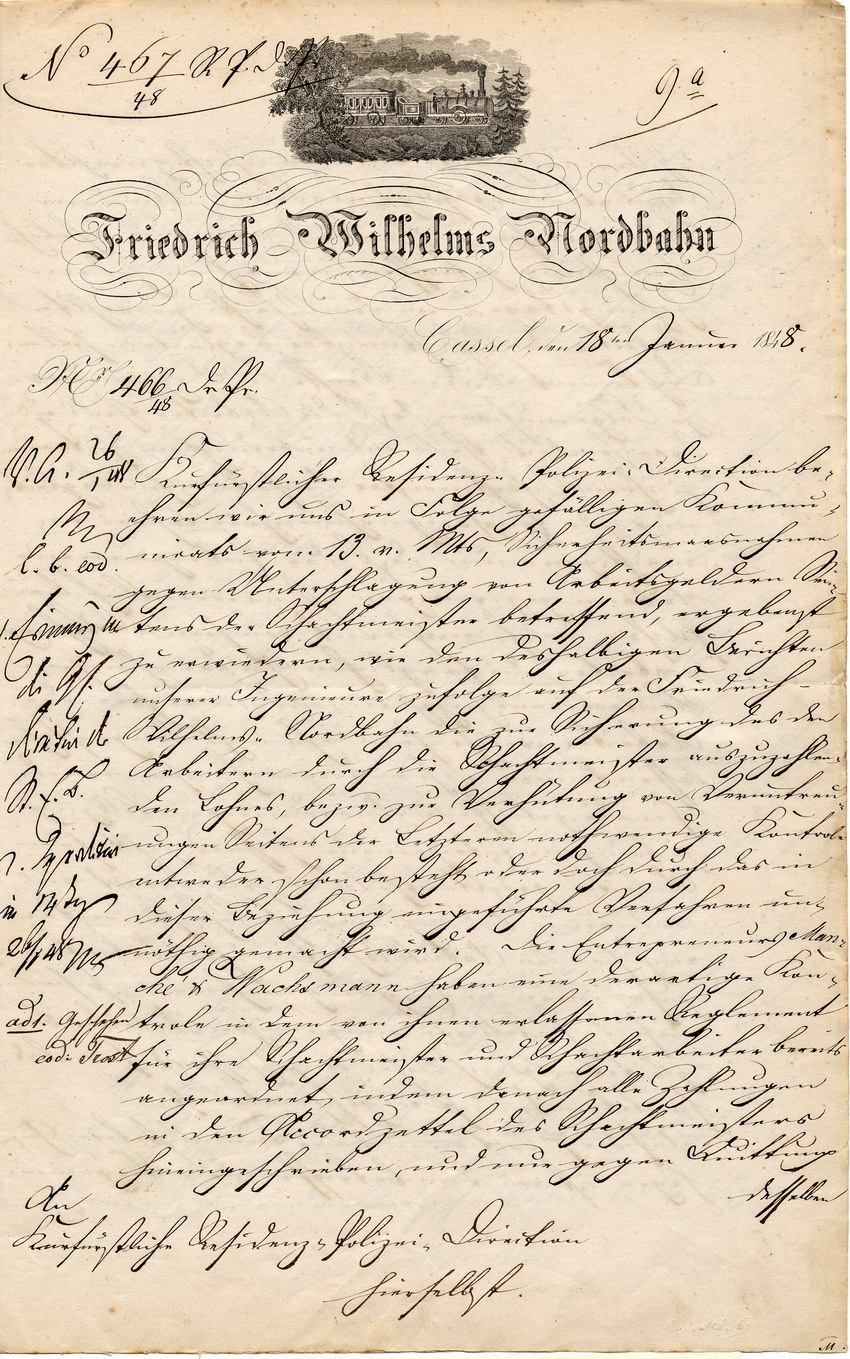 No 467/48 R. P. D.
9a
Friedrich Wilhelms Nordbahn
Cassel, den 18ten Januar 1848.
Nr 466/48 Dr. Pr.
Kurfürstlicher Residenz-Polizei-Direction be-
ehren wir uns in Folge gefälligen Kommu-
nicats vom 13. v. Mts, Sicherheitsmaasnahmen
gegen Unterschlagung von Arbeitsgeldern Sei-
tens der Schachtmeister betreffend, ergebenst
zu erwiedern, wie den deshalbigen Berichten
unserer Ingenieure zufolge auf der Friedrich-
Wilhelms-Nordbahn die zur Sicherung des den
Arbeitern durch die Schachtmeister auszuzahlen-
den Lohnes, bezw. zur Verhütung von Veruntreu-
ungen Seitens der Letzteren nothwendige Kontrole
entweder schon besteht oder doch durch das in
dieser Beziehung eingeführte Verfahren un-
nöthig gemacht wird. Die Entrepreneurs Man-
ché & Wachsmann haben eine derartige Kon-
trole in dem von ihnen erlassenen Reglement
für ihre Schachtmeister und Schachtarbeiter bereits
angeordnet, indem danach alle Zahlungen
in den Accordzettel des Schachtmeisters
hineingeschrieben, und nur gegen Quittung
desselben
V. A. 26/1 48
l. b. eod.
in 14 Tg
26/1 48
ad 1. Geschehen
eod. Trost
An
Kurfürstliche Residenz-Polizei-Direction
hierselbst.